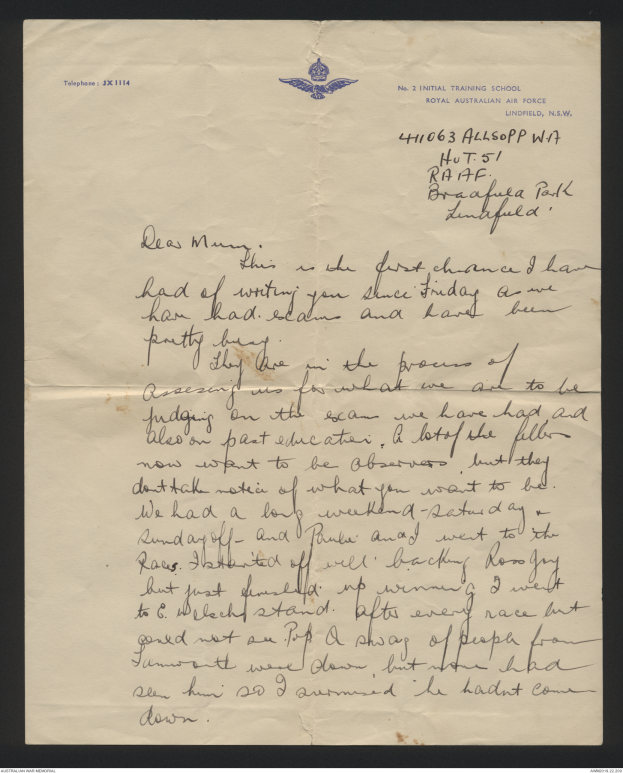 Telephone: JX 1114
No. 2 INITIAL TRAINING SCHOOL
ROYAL AUSTRALIAN AIR FORCE
LINDFIELD, N.S.W.
411063 ALLSOPP W.A
HUT. 51
RAAF.
Bradfield Park
Lindfield.
Dear Mum.
This is the first chance I have
had of writing you since Friday as we
have had exams and have been
pretty busy.
They are in the process of
assesing us for what we are to be
judging on the exams we have had and
also on past education. A lot of the fellows
now want to be observers but they
dont take notice of what you want to be.
We had a long weekend - Saturday &
Sunday off - and and I went to the
Races. I started off well backing
but just finished up winning I went
to E. Welsch stand after every race but
could not see Pop A swag of people from
Tamworth were down but none had
seen him so I surmised he hadnt come
down.
AUSTRALIAN WAR MEMORIAL